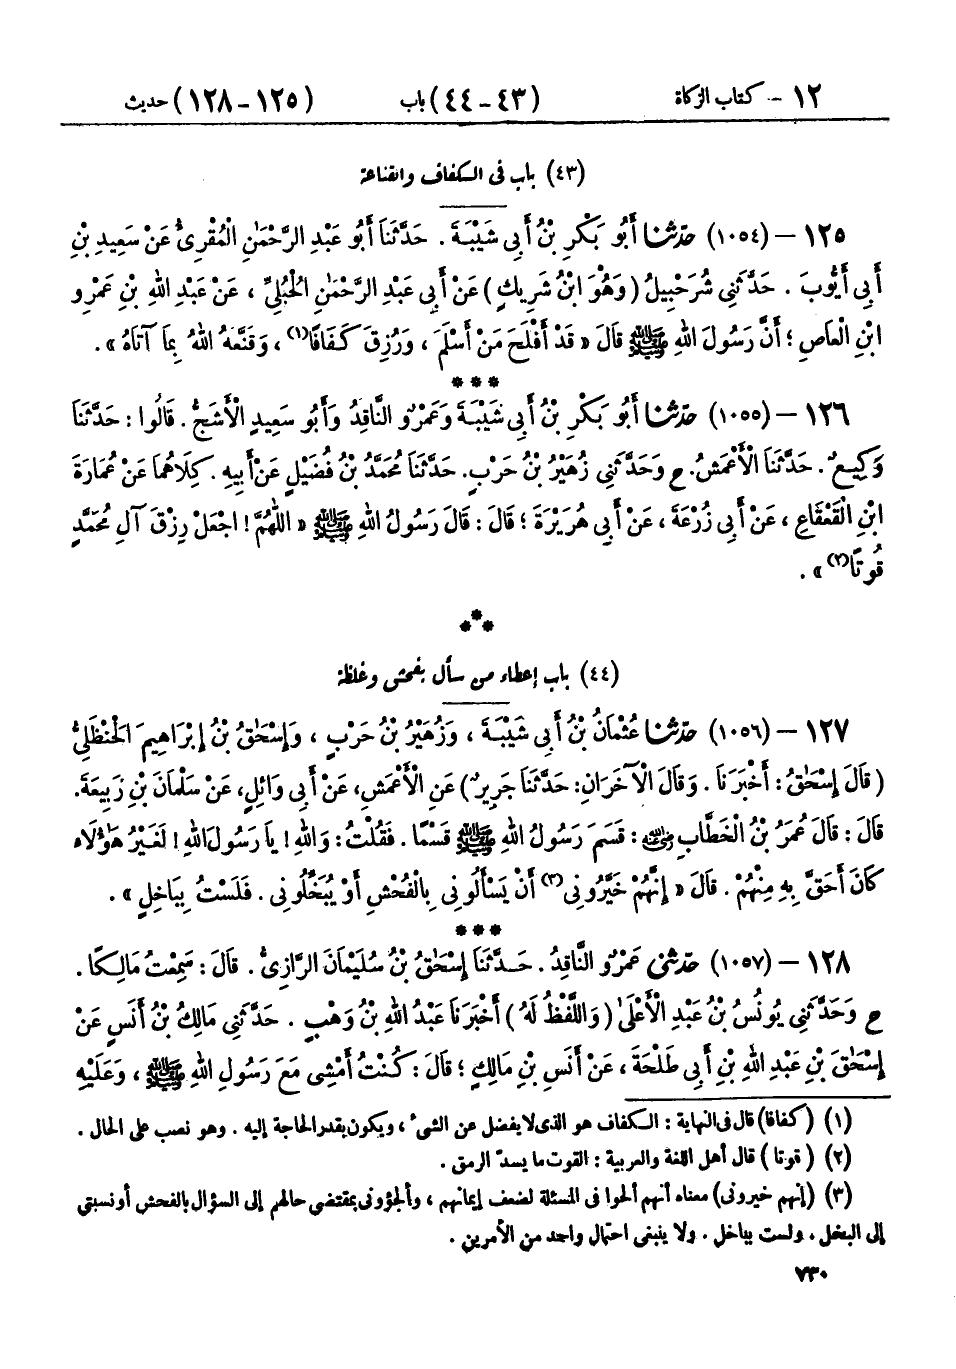 ١٢ - كتاب الزكاة (٤٣-٤٤) باب (١٢٥-١٢٨) حديث
(٤٣) باب فى الكفاف والقناعة
١٢٥ – (١٠٥٤) حَدَّثَنَا أَبُو بَكْرِ بْنُ أَبِي شَيْبَةَ . حَدَّثَنَا أَبُو عَبْدِ الرَّحْمَٰنِ الْمُقْرِئُ عَنْ سَعِيدِ بْنِ
أَبِي أَيُّوبَ . حَدَّثَنِي شُرَحْبِيلُ (وَهُوَ ابْنُ شَرِيكٍ) عَنْ أَبِي عَبْدِ الرَّحْمَٰنِ الْحُبُلِيِّ ، عَنْ عَبْدِ اللهِ بْنِ عَمْرِو
ابْنِ الْعَاصِ ؛ أَنَّ رَسُولَ اللهِ ﷺ قَالَ « قَدْ أَفْلَحَ مَنْ أَسْلَمَ ، وَرُزِقَ كَفَافًا(١) ، وَقَنَّعَهُ اللهُ بِمَا آتَاهُ » .
***
١٢٦ – (١٠٥٥) حَدَّثَنَا أَبُو بَكْرِ بْنُ أَبِي شَيْبَةَ وَعَمْرٌو النَّاقِدُ وَأَبُو سَعِيدٍ الْأَشَجُّ . قَالُوا : حَدَّثَنَا
وَكِيعٌ . حَدَّثَنَا الْأَعْمَشُ. ح وَحَدَّثَنِي زُهَيْرُ بْنُ حَرْبٍ. حَدَّثَنَا مُحَمَّدُ بْنُ فُضَيْلٍ عَنْ أَبِيهِ . كِلَاهُمَا عَنْ عُمَارَةَ
ابْنِ الْقَعْقَاعِ ، عَنْ أَبِي زُرْعَةَ ، عَنْ أَبِي هُرَيْرَةَ ؛ قَالَ : قَالَ رَسُولُ اللهِ ﷺ « اللَّهُمَّ ! اجْعَلْ رِزْقَ آلِ مُحَمَّدٍ
قُوتًا(٢) » .
***
(٤٤) باب إعطاء من سأل بفحش وغلظة
١٢٧ – (١٠٥٦) حَدَّثَنَا عُثْمَانُ بْنُ أَبِي شَيْبَةَ ، وَزُهَيْرُ بْنُ حَرْبٍ ، وَإِسْحَاقُ بْنُ إِبْرَاهِيمَ الْحَنْظَلِيُّ
( قَالَ إِسْحَاقُ : أَخْبَرَنَا . وَقَالَ الْآخَرَانِ: حَدَّثَنَا جَرِيرٌ) عَنِ الْأَعْمَشِ، عَنْ أَبِي وَائِلٍ، عَنْ سَلْمَانَ بْنِ رَبِيعَةَ.
قَالَ : قَالَ عُمَرُ بْنُ الْخَطَّابِ رضي الله عنه : قَسَمَ رَسُولُ اللهِ ﷺ قَسْمًا . فَقُلْتُ : وَاللهِ ! يَا رَسُولَ اللهِ ! لَغَيْرُ هَٰؤُلَاءِ
كَانَ أَحَقَّ بِهِ مِنْهُمْ . قَالَ « إِنَّهُمْ خَيَّرُونِي(٣) أَنْ يَسْأَلُونِي بِالْفُحْشِ أَوْ يُبَخِّلُونِي . فَلَسْتُ بِبَاخِلٍ » .
***
١٢٨ – (١٠٥٧) حَدَّثَنِي عَمْرٌو النَّاقِدُ . حَدَّثَنَا إِسْحَاقُ بْنُ سُلَيْمَانَ الرَّازِيُّ . قَالَ : سَمِعْتُ مَالِكًا .
ح وَحَدَّثَنِي يُونُسُ بْنُ عَبْدِ الْأَعْلَىٰ ( وَاللَّفْظُ لَهُ ) أَخْبَرَنَا عَبْدُ اللهِ بْنُ وَهْبٍ . حَدَّثَنِي مَالِكُ بْنُ أَنَسٍ عَنْ
إِسْحَاقَ بْنِ عَبْدِ اللهِ بْنِ أَبِي طَلْحَةَ ، عَنْ أَنَسِ بْنِ مَالِكٍ ؛ قَالَ : كُنْتُ أَمْشِي مَعَ رَسُولِ اللهِ ﷺ ، وَعَلَيْهِ
(١) (كفافا) قال فى النهاية : الكفاف هو الذى لا يفضل عن الشىء ، ويكون بقدر الحاجة إليه . وهو نصب على الحال .
(٢) ( قوتا ) قال أهل اللغة والعربية : القوت ما يسدّ الرمق .
(٣) (إنهم خيرونى) معناه أنهم ألحوا فى المسئلة لضعف إيمانهم ، وألجؤونى بمقتضى حالهم إلى السؤال بالفحش أو نسبتى
إلى البخل . ولست بباخل . ولا ينبغى احتمال واحد من الأمرين .
٧٣٠